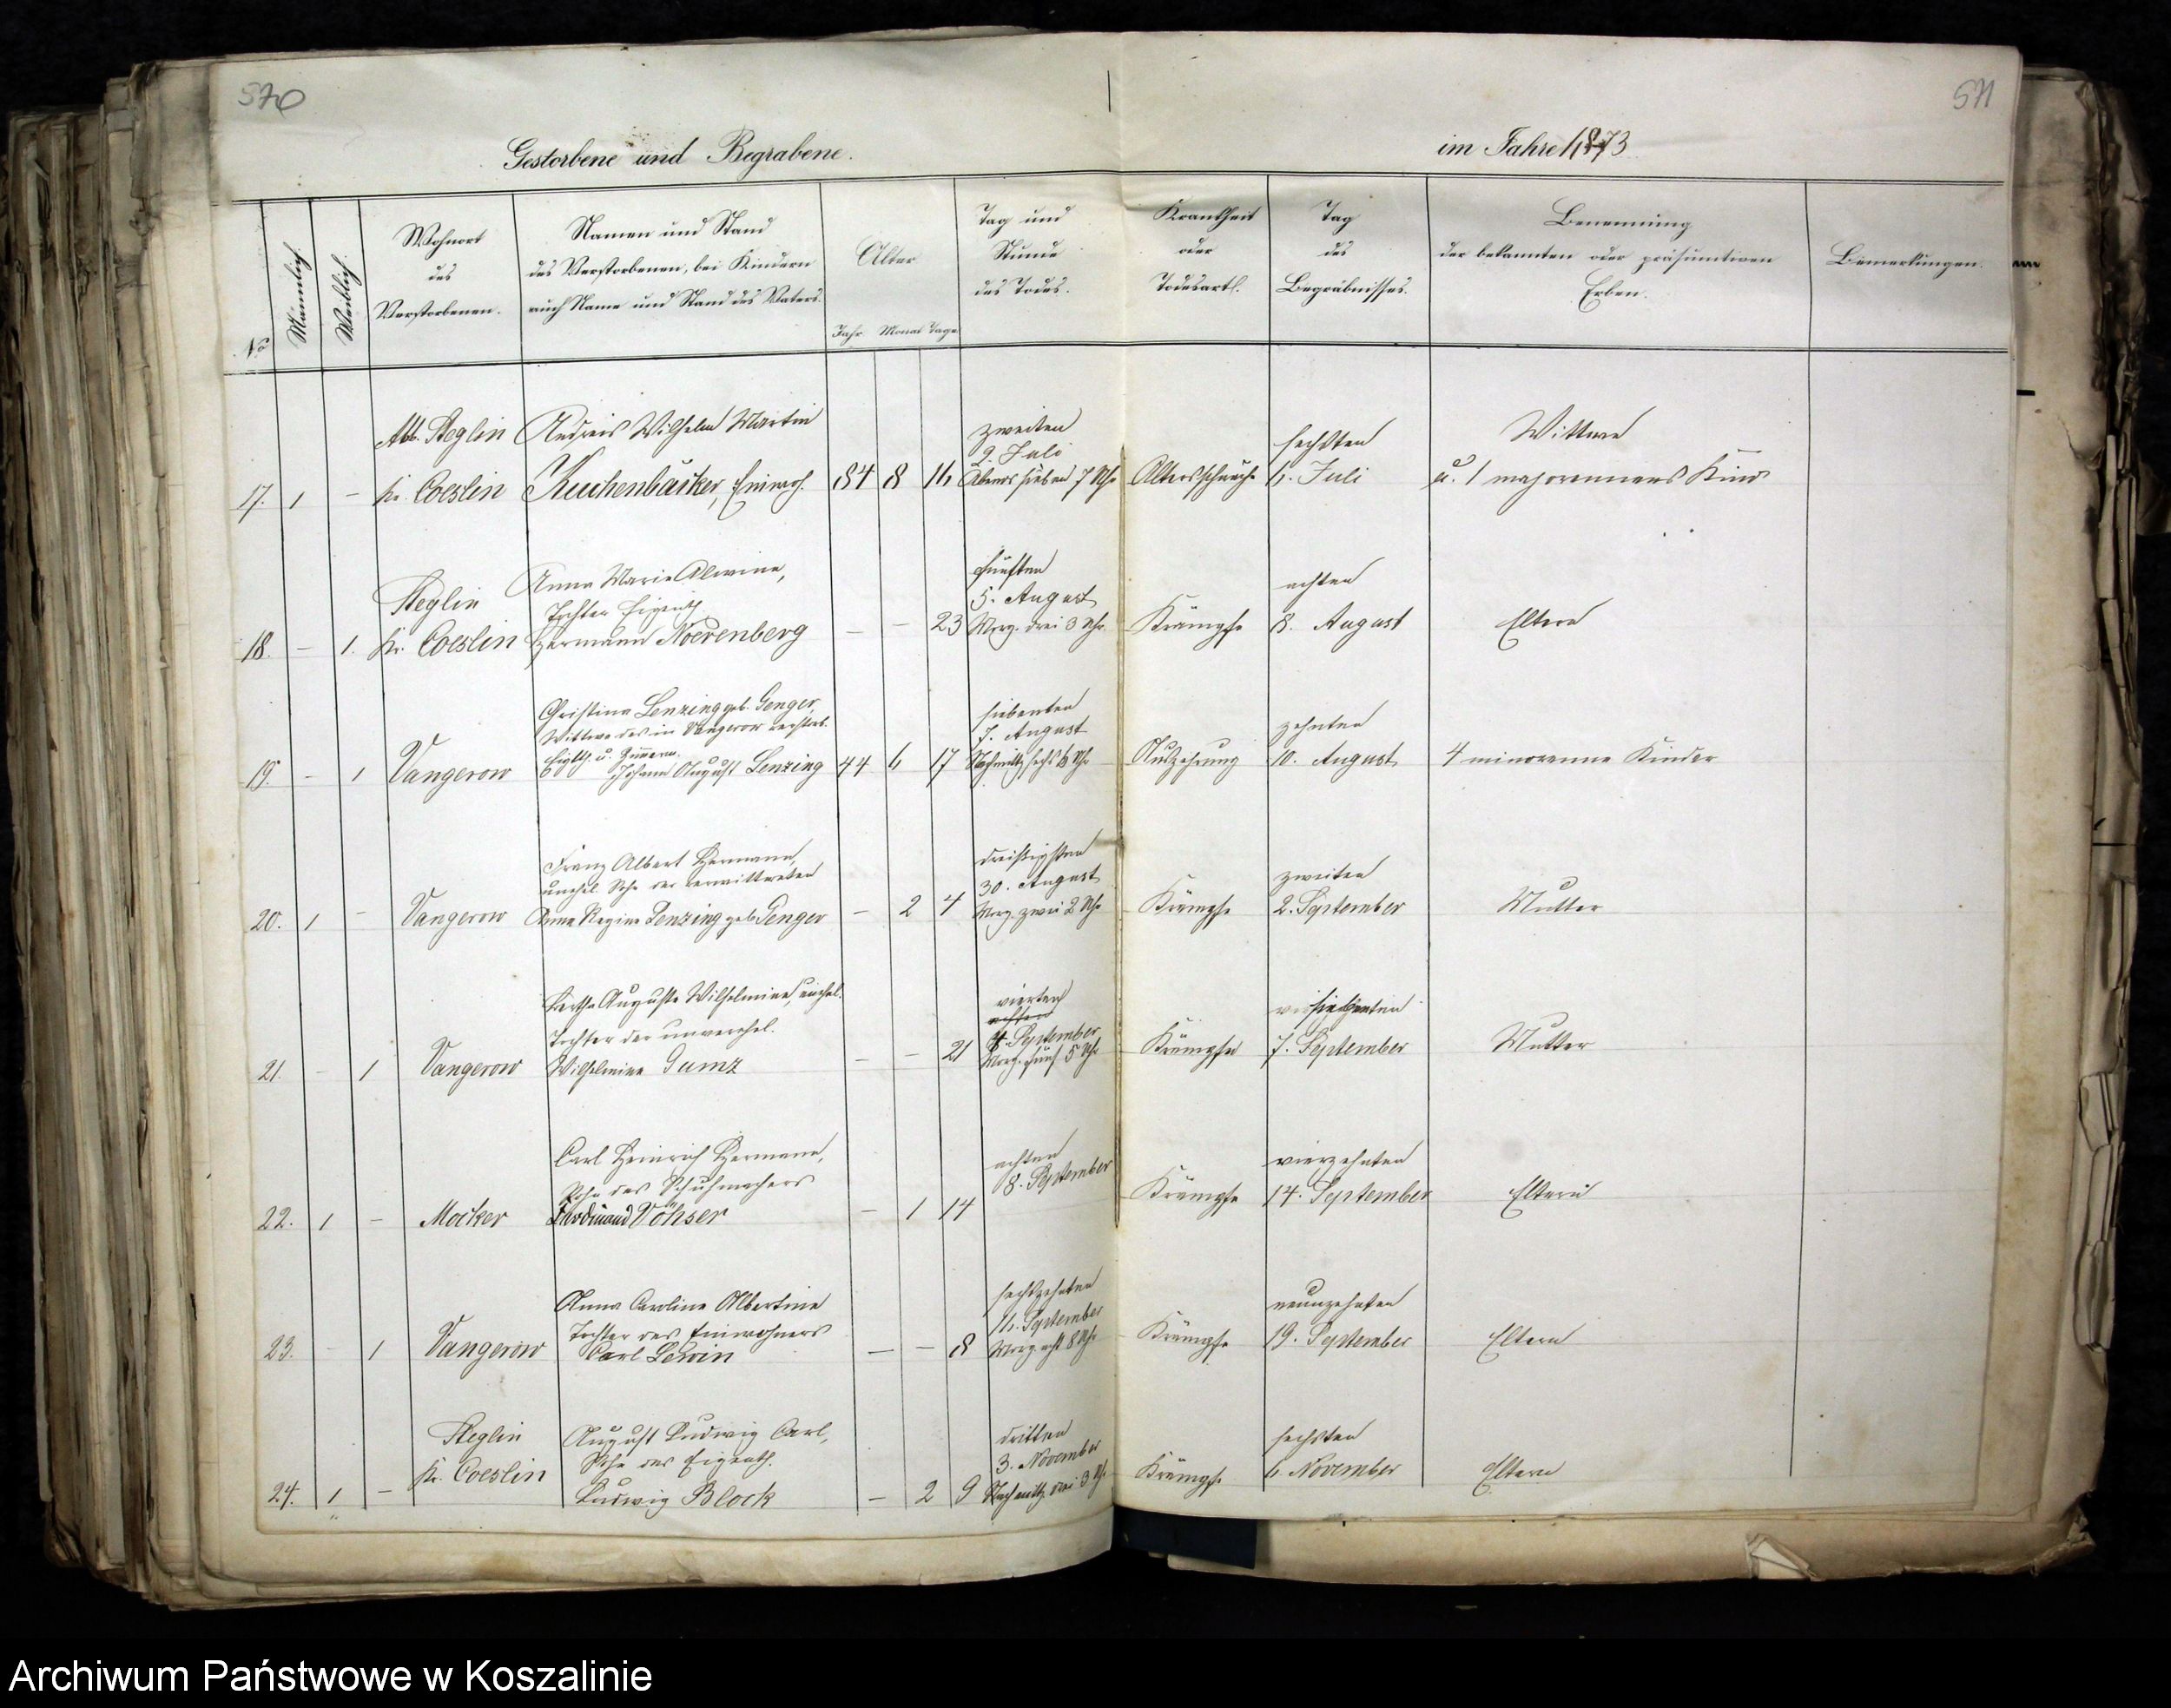 570
571
Gestorbene und Begrabene.
im Jahre 1873
No
Männlich.
Weiblich.
Wohnort
des
Verstorbenen.
Namen und Stand
des Verstorbenen, bei Kindern
auch Name und Stand des Vaters.
Alter
Jahr Monat Tage
Tag und
Stunde
des Todes.
Krankheit
oder
Todesart.
Tag
des
Begräbnisses.
Benennung
der bekannten oder präsumtiven
Erben.
Bemerkungen.
Abb. Steglin
Kr. Coeslin
Wilhelm Martin
Kuchenbäcker, Einwoh.
zweiten
2. Juli
Abends sieben 7 Uhr
sechsten
6. Juli
Wittwe
u. 1 majorennes Kind
17. 1 – 84 8 16 Altersschwäche
Steglin
Kr. Coeslin
Anna Marie Alwine,
Tochter Eigenth.
Hermann Noerenberg
fünften
5. August
Morg. drei 3 Uhr
achten
8. August
18. – 1. – – 23 Krämpfe Eltern
Christine Lenzing geb. Genger,
Wittwe des in Vangerow verstorb.
Eigth. u.
Johann August Lenzing
siebenten
7. August
Nachmittg sechs 6 Uhr
zehnten
10. August
19. – 1 Vangerow 44 6 17 Auszehrung 4 minorenne Kinder
Franz Albert Hermann,
unehel. Sohn der verwittweten
Anna Regine Lenzing geb. Genger
dreißigsten
30. August
Morg. zwei 2 Uhr
zweiten
2. September
20. 1 – Vangerow – 2 4 Krämpfe Mutter
Bertha Auguste Wilhelmine, unehel.
Tochter der unverehel.
Wilhelmine Gumz
vierten
achten
4. September
Morg. fünf 5 Uhr
siebenten
7. September
21. – 1 Vangerow – – 21 Krämpfe Mutter
Carl Heinrich Hermann,
Sohn des Schuhmachers
Ferdinand Vöhser
achten
8. September
vierzehnten
14. September
22. 1 – Mocker – 1 14 Krämpfe Eltern
Anna Caroline Albertine
Tochter des Einwohners
Carl Lewin
sechszehnten
16. September
Morg. acht 8 Uhr
neunzehnten
19. September
23. – 1 Vangerow – – 8 Krämpfe Eltern
Steglin
Kr. Coeslin
August Ludwig Carl,
Sohn des Eigenth.
Ludwig Block
dritten
3. November
Nachmittg. drei 3 Uhr
sechsten
6 November
24. 1 – – 2 9 Krämpfe Eltern
Archiwum Państwowe w Koszalinie